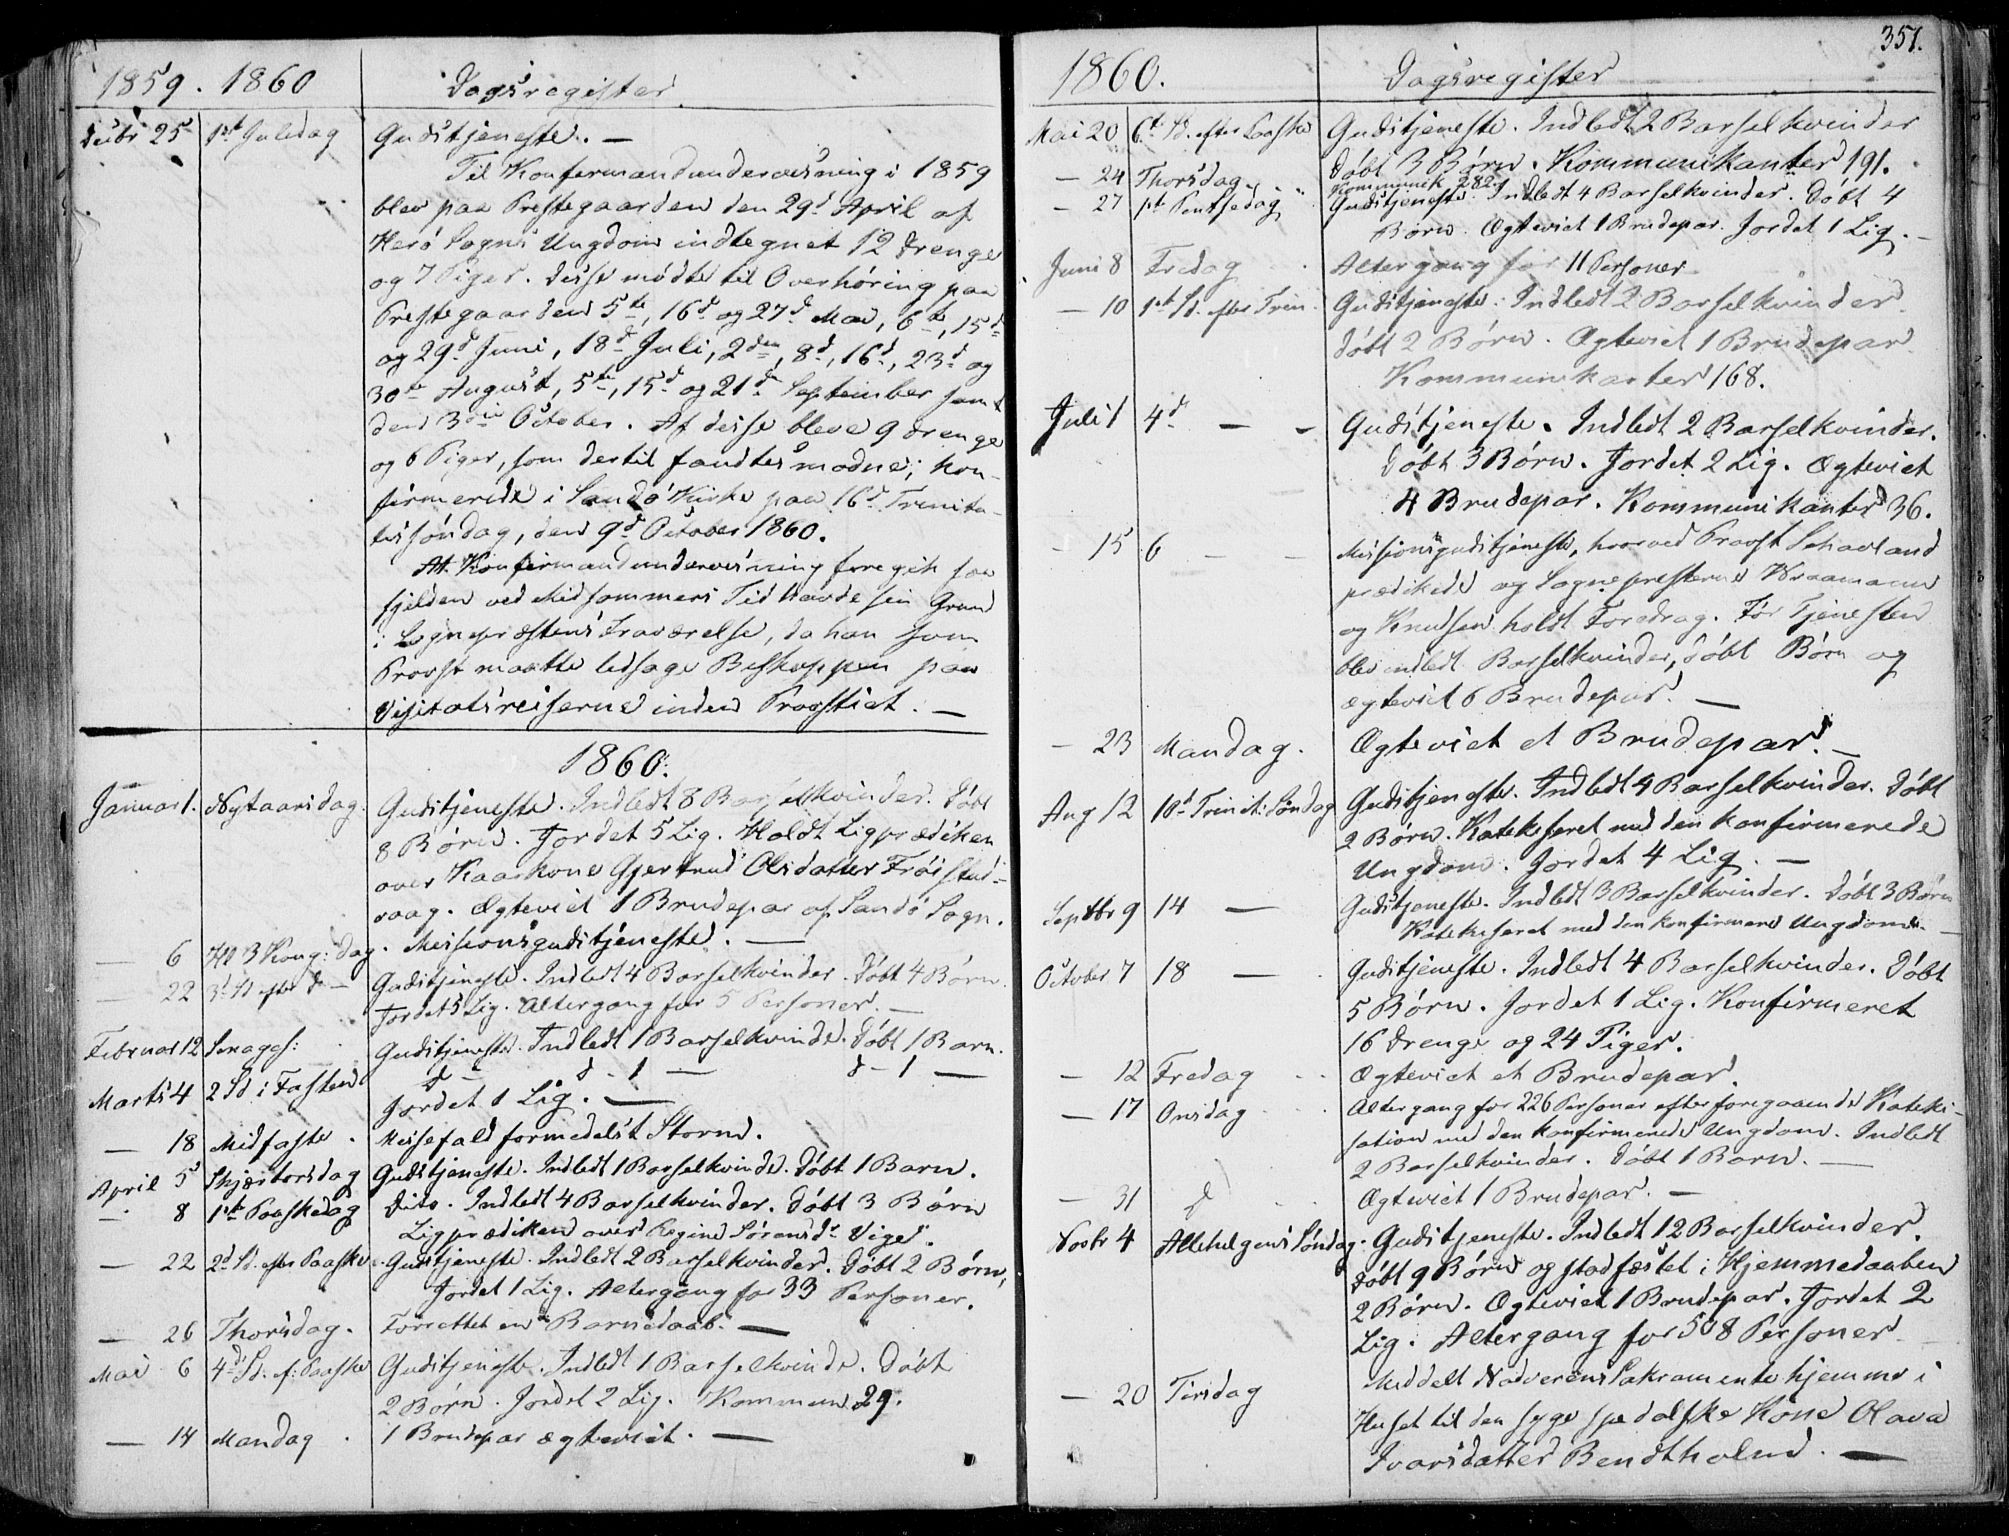 1859. 1860 Dagsregister
Decbr 25 1ste Juledag Gudstjeneste. —
Til Konfirmandundervisning i 1859
blev paa Prestegaarden den 29d April af
Herö Sogns Ungdom indtegnet 12 Drenge
og 7 Piger. Disse mödte til Overhöring paa
Prestegaarden 5te, 16d og 27d Mai, 6te, 15d
og 29d Juni, 18d Juli, 2den, 8d, 16d, 23d og
30te August, 5te, 15d og 21d September samt
den 3die October. Af disse bleve 9 Drenge
og 6 Piger, som dertil fandtes modne, kon-
firmerede i Sandö Kirke paa 16d Trinita-
tissöndag, den 9d October 1860.
At Konfirmandundervisning foregik saa
sjelden ved Midsommers Tid havde sin Grund
i Sognepræstens Fraværelse, da han som
Provst maatte ledsage Biskoppen paa
Visitatsreiserne inden Provstiet. —
1860.
Januar 1. Nytaarsdag. Gudstjeneste. Indledt 8 Barselkvinder. Döbt
8 Börn. Jordet 5 Lig. Holdt Ligprædiken
over Kaarkone Gjertrud Olsdatter Fröistad-
vaag. Ægteviet 1 Brudepar af Sandö Sogn.
— 6 Hl 3 Kong: Dag. Missionsgudstjeneste. —
— 22 3d Sd efter d — Gudstjeneste. Indledt 4 Barselkvinder. Döbt 4 Börn.
Jordet 5 Lig. Altergang for 5 Personer. —
Februar 12 Sexages: Gudstjeneste. Indledt 1 Barselkvinde. Döbt 1 Barn.
Marts 4 2 Sd i Fasten d — d — 1 — d — 1 —
Jordet 1 Lig. —
— 18 Midfaste. Messefald formedelst Storm.
April 5 Skjærtorsdag Gudstjeneste. Indledt 1 Barselkvinde. Döbt 1 Barn.
— 8 1ste Paaskedag Dito. Indledt 4 Barselkvinder. Döbt 3 Börn
Ligprædiken over Regine Sörensdr Viges.
— 22 2d Sd. efter Paaske. Gudstjeneste. Indledt 2 Barselkvinder. Döbt 2 Börn,
Jordet 1 Lig. Altergang for 33 Personer.
— 26 Thorsdag. Forrettet en Barnedaab. —
Mai 6 4d Sd. ef: Paaske Gudstjeneste. Indledt 1 Barselkvinde. Döbt
2 Börn. Jordet 2 Lig. Kommun 29.
— 14 Mandag. 1 Brudepar ægteviet. —
351.
1860. Dagsregister
Mai 20 6te Sd. efter Paaske Gudstjeneste. Indledt 2 Barselkvinder
Döbt 3 Börn. Kommunikanter 191.
— 24 Thorsdag Kommunik 282
— 27 1ste Pentsedag Gudstjeneste. Indledt 4 Barselkvinder. Döbt 4
Börn. Ægteviet 1 Brudepar. Jordet 1 Lig. —
Juni 8 Fredag Altergang for 11 Personer
— 10 1ste Sd. efter Trin. Gudstjeneste. Indledt 2 Barselkvinder.
Döbt 2 Börn. Ægteviet 1 Brudepar
Kommunikanter 168.
Juli 1 4d — — Gudstjeneste. Indledt 2 Barselkvinder.
Döbt 3 Börn. Jordet 2 Lig. Ægteviet
4 Brudepar. Kommunikanter 36.
— 15 6 — — Missionsgudstjeneste, hvorved Provst Schavland
prædikede og Sognepresterne Kraamann
og Knudsen holdt Foredrag. Før Tjenesten
blev indledt Barselkvinder, döbt Börn og
ægteviet 6 Brudepar. —
— 23 Mandag. Ægteviet et Brudepar. —
Aug 12 10d Trinit: Söndag Gudstjeneste. Indledt 4 Barselkvinder. Döbt
2 Börn. Katekiseret med den konfirmerede
Ungdom. Jordet 4 Lig. —
Septbr 9 14 — Gudstjeneste. Indledt 3 Barselkvinder. Döbt 3 Börn
Katekiseret med den konfirmere Ungdom. —
October 7 18 — Gudstjeneste. Indledt 4 Barselkvinder. Döbt
5 Börn. Jordet 1 Lig. Konfirmeret
16 Drenge og 24 Piger.
— 12 Fredag Ægteviet et Brudepar.
— 17 Onsdag Altergang for 226 Personer efter foregaaende Kateki-
sation med den konfirmerede Ungdom. Indledt
2 Barselkvinder. Döbt 1 Barn. —
— 31 d Ægteviet 1 Brudepar. —
Novbr 4 Allehelgens Söndag. Gudstjeneste. Indledt 12 Barselkvinder.
Döbt 9 Börn og stadfæstet i Hjemmedaaben
2 Börn. Ægteviet 1 Brudepar. Jordet 2
Lig. Altergang for 508 Personer
— 20 Tirsdag Meddelt Nadverens Sakramente hjemme i
Huset til den syge spedalske Kone Olava
Ivarsdatter Bendtholm. —